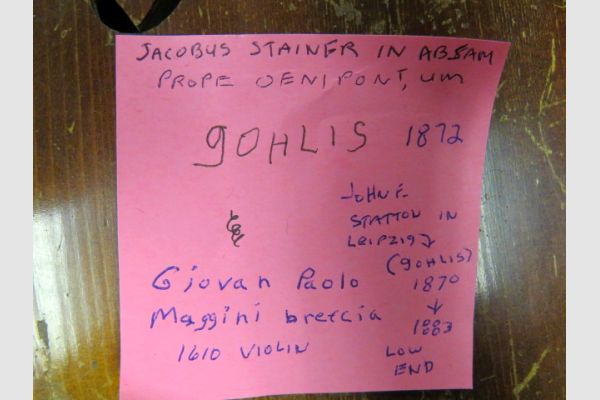 JACOBUS STAINER IN ABSAM
PROPE OENIPONT, UM
GOHLIS 1872
JOHN F.
STATTON IN
LEIPZIG
(GOHLIS)
1870
1883
LOW
END
Giovan Paolo
Maggini brescia
1610 VIOLIN